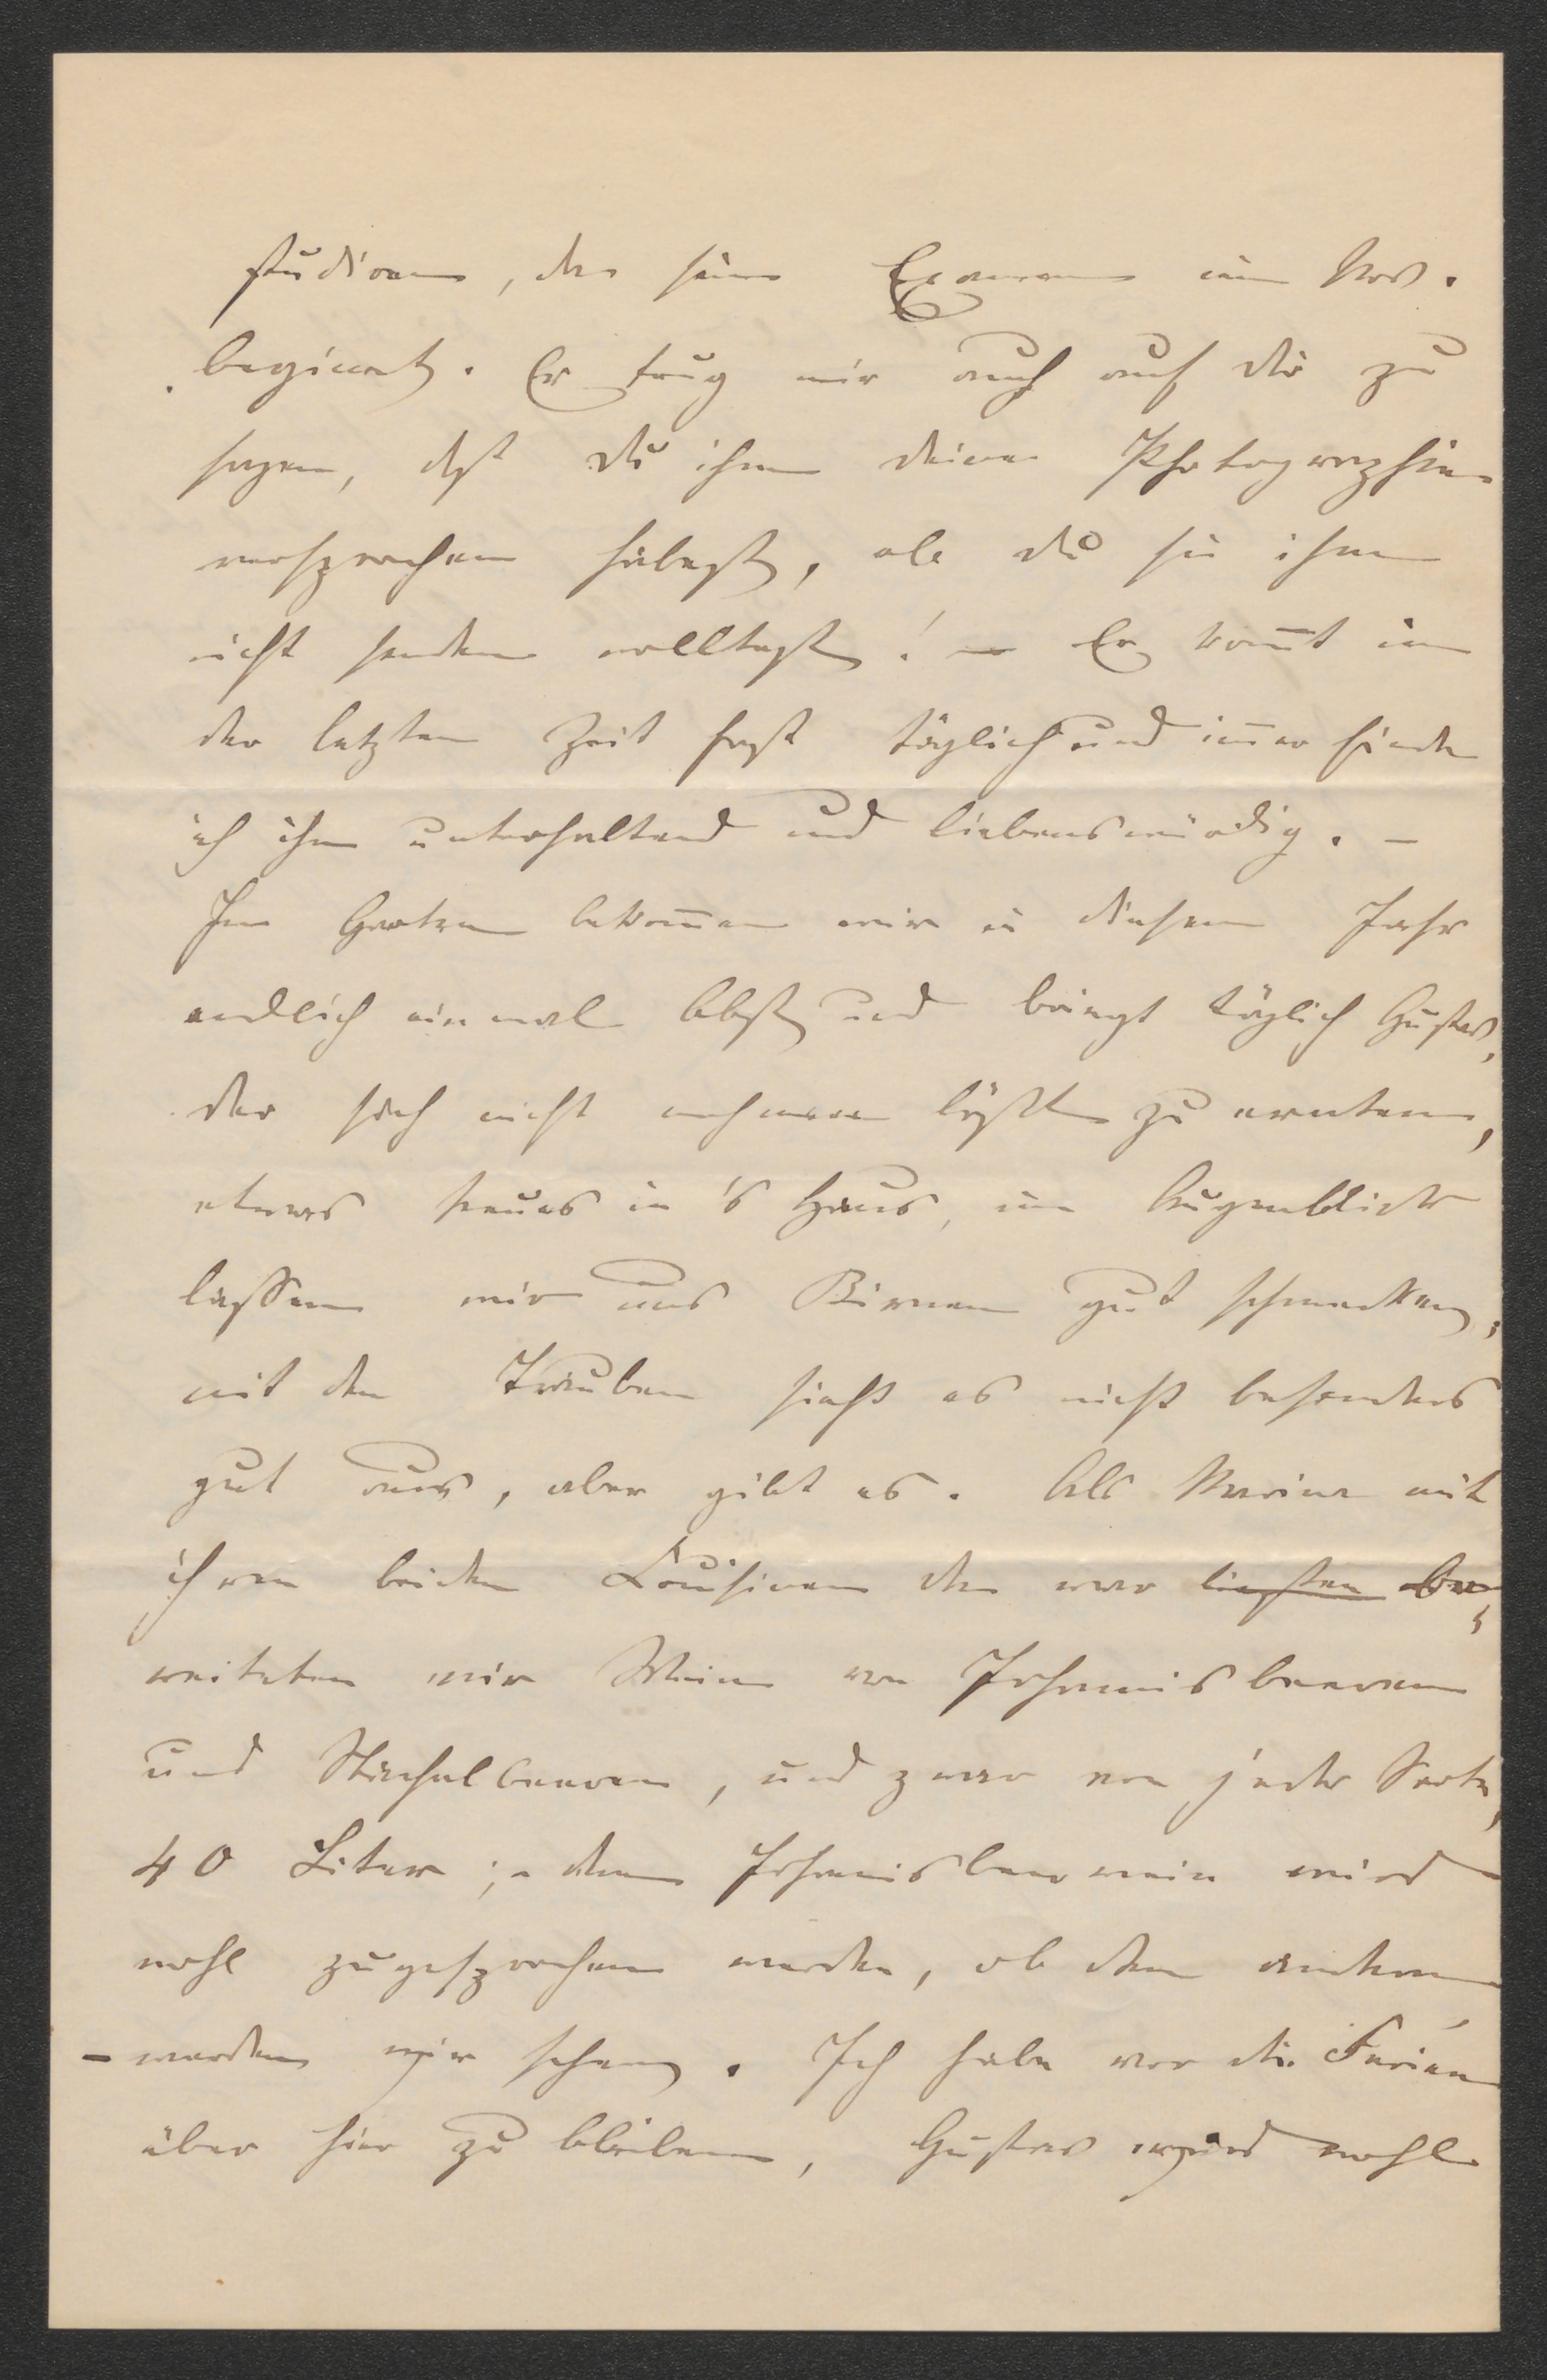 studiren, da sein Examen im Nov.
beginnt. Er trug mir auch auf dir zu
sagen, daß du ihm deine Photographie
versprochen habest, ob du sie ihm
nicht senden wolltest! — Er kom̅t in
der letzten Zeit fast täglich und im̅er finde
ich ihn unterhaltend und liebenswürdig. —
Im Garten bekom̅en wir in diesem Jahr
endlich einmal Obst und bringt täglich Gustav,
der sich nicht nehmen läßt zu ernten,
etwas neues in's Haus, im Augenblick
lassen wir uns Birnen gut schmecken,
mit den Trauben sieht es nicht besonders
gut aus, aber gibt es. Als Marie mit
ihren beiden Cousinen da war ließen be-
reiteten wir Wein von Johannisbeeren
und Stachelbeeren, und zwar von jeder Sorte,
40 Liter; dem Johannisbeerwein wird
wohl zugesprochen werden, ob dem andern
- werden wir sehen. Ich habe vor die Ferien
über hier zu bleiben, Gustav wird wohl